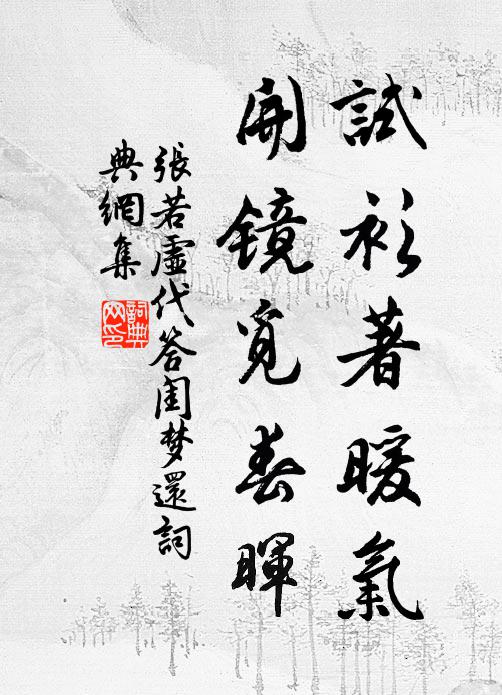 試衫著暖氣
開鏡覓春暉
張若虛代答閨夢還詞
典網集
詞典网印